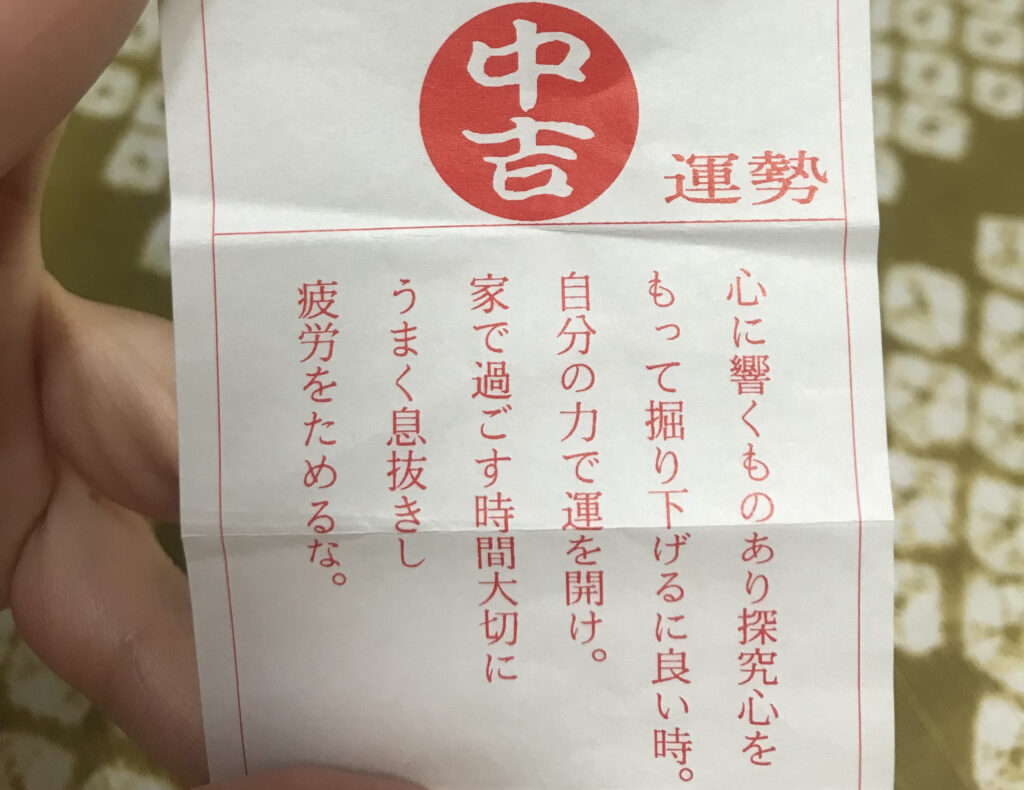 中吉
運勢
心に響くものあり探究心を
もって掘り下げるに良い時。
自分の力で運を開け。
家で過ごす時間大切に
うまく息抜きし
疲労をためるな。